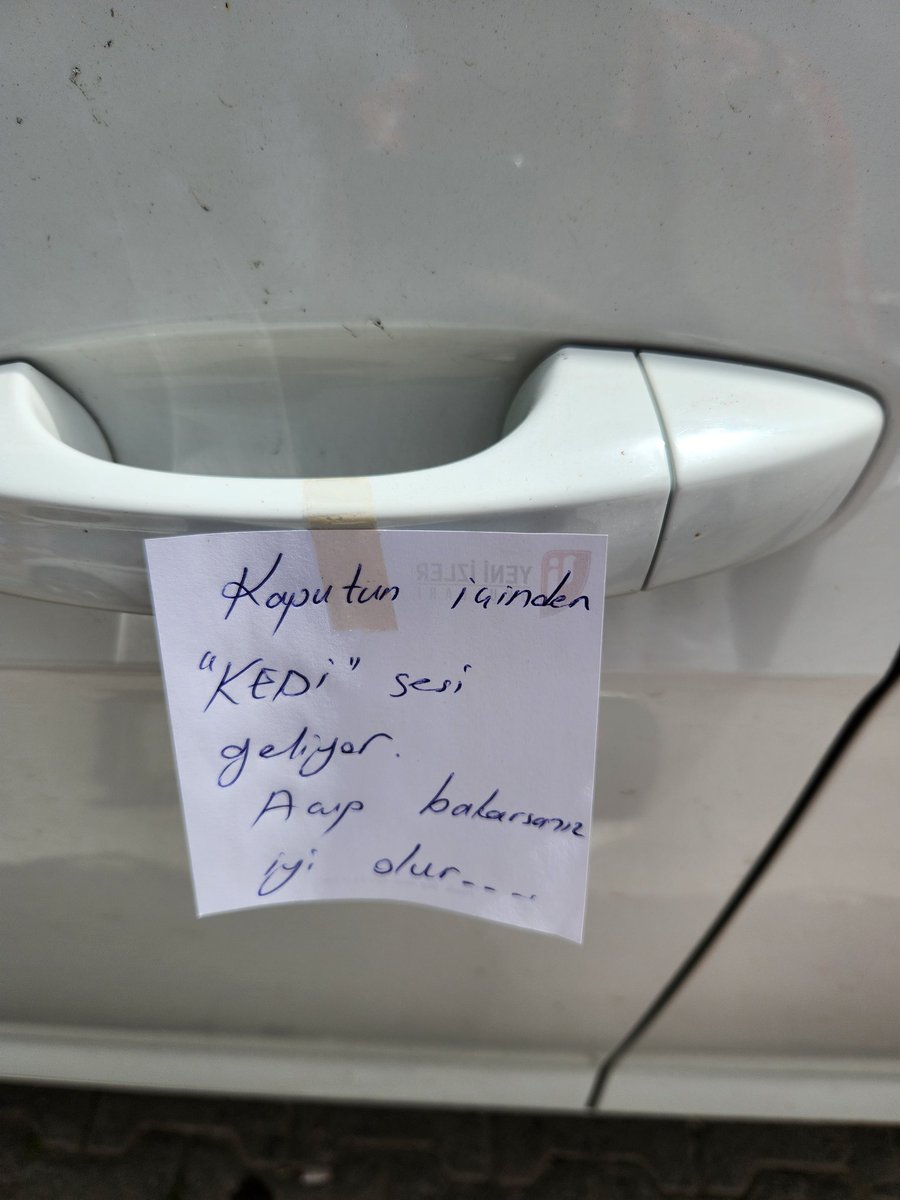 Kaputun içinden
"KEDİ" sesi
geliyor.
Açıp bakarsanız
iyi olur....
YENİ İZLER